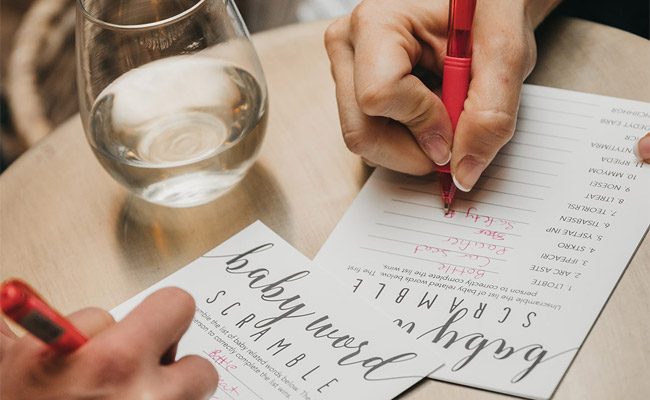 baby word
SCRAMBLE
the list of baby related words below. The
person to correctly complete the list wins.
Bottle
baby w
SCRAMBLE
Unscramble the list of baby related words below. The first
person to correctly complete the list wins.
1. LTOBTE Bottle
2. ARC ASTE Car Seat
3. IFPEACRI Pacifier
4. STKRO
5. YSFTAE INP Safety
6. TISABSEN
7. TEORLRSL
8. LTREAT
9. NOESET
10. MMYOM
11.
12.
13.
14.
15.